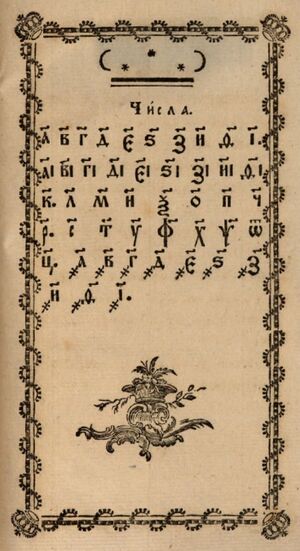 Чи́сла.
а҃ в҃ г҃ д҃ є҃ ѕ҃ з҃ и҃ ѳ҃ і҃.
аі҃ ві҃ гі҃ ді҃ єі҃ ѕі҃ зі҃ иі҃ ѳі҃.
к҃ л҃ м҃ н҃ ѯ҃ о҃ п҃ ч҃
р҃ с҃ т҃ у҃ ф҃ х҃ ѱ҃ ѿ҃
ц҃. ҂а҃ ҂в҃ ҂г҃ ҂д҃ ҂є҃ ҂ѕ҃ ҂з҃
҂и҃ ҂ѳ҃ ҂і҃.